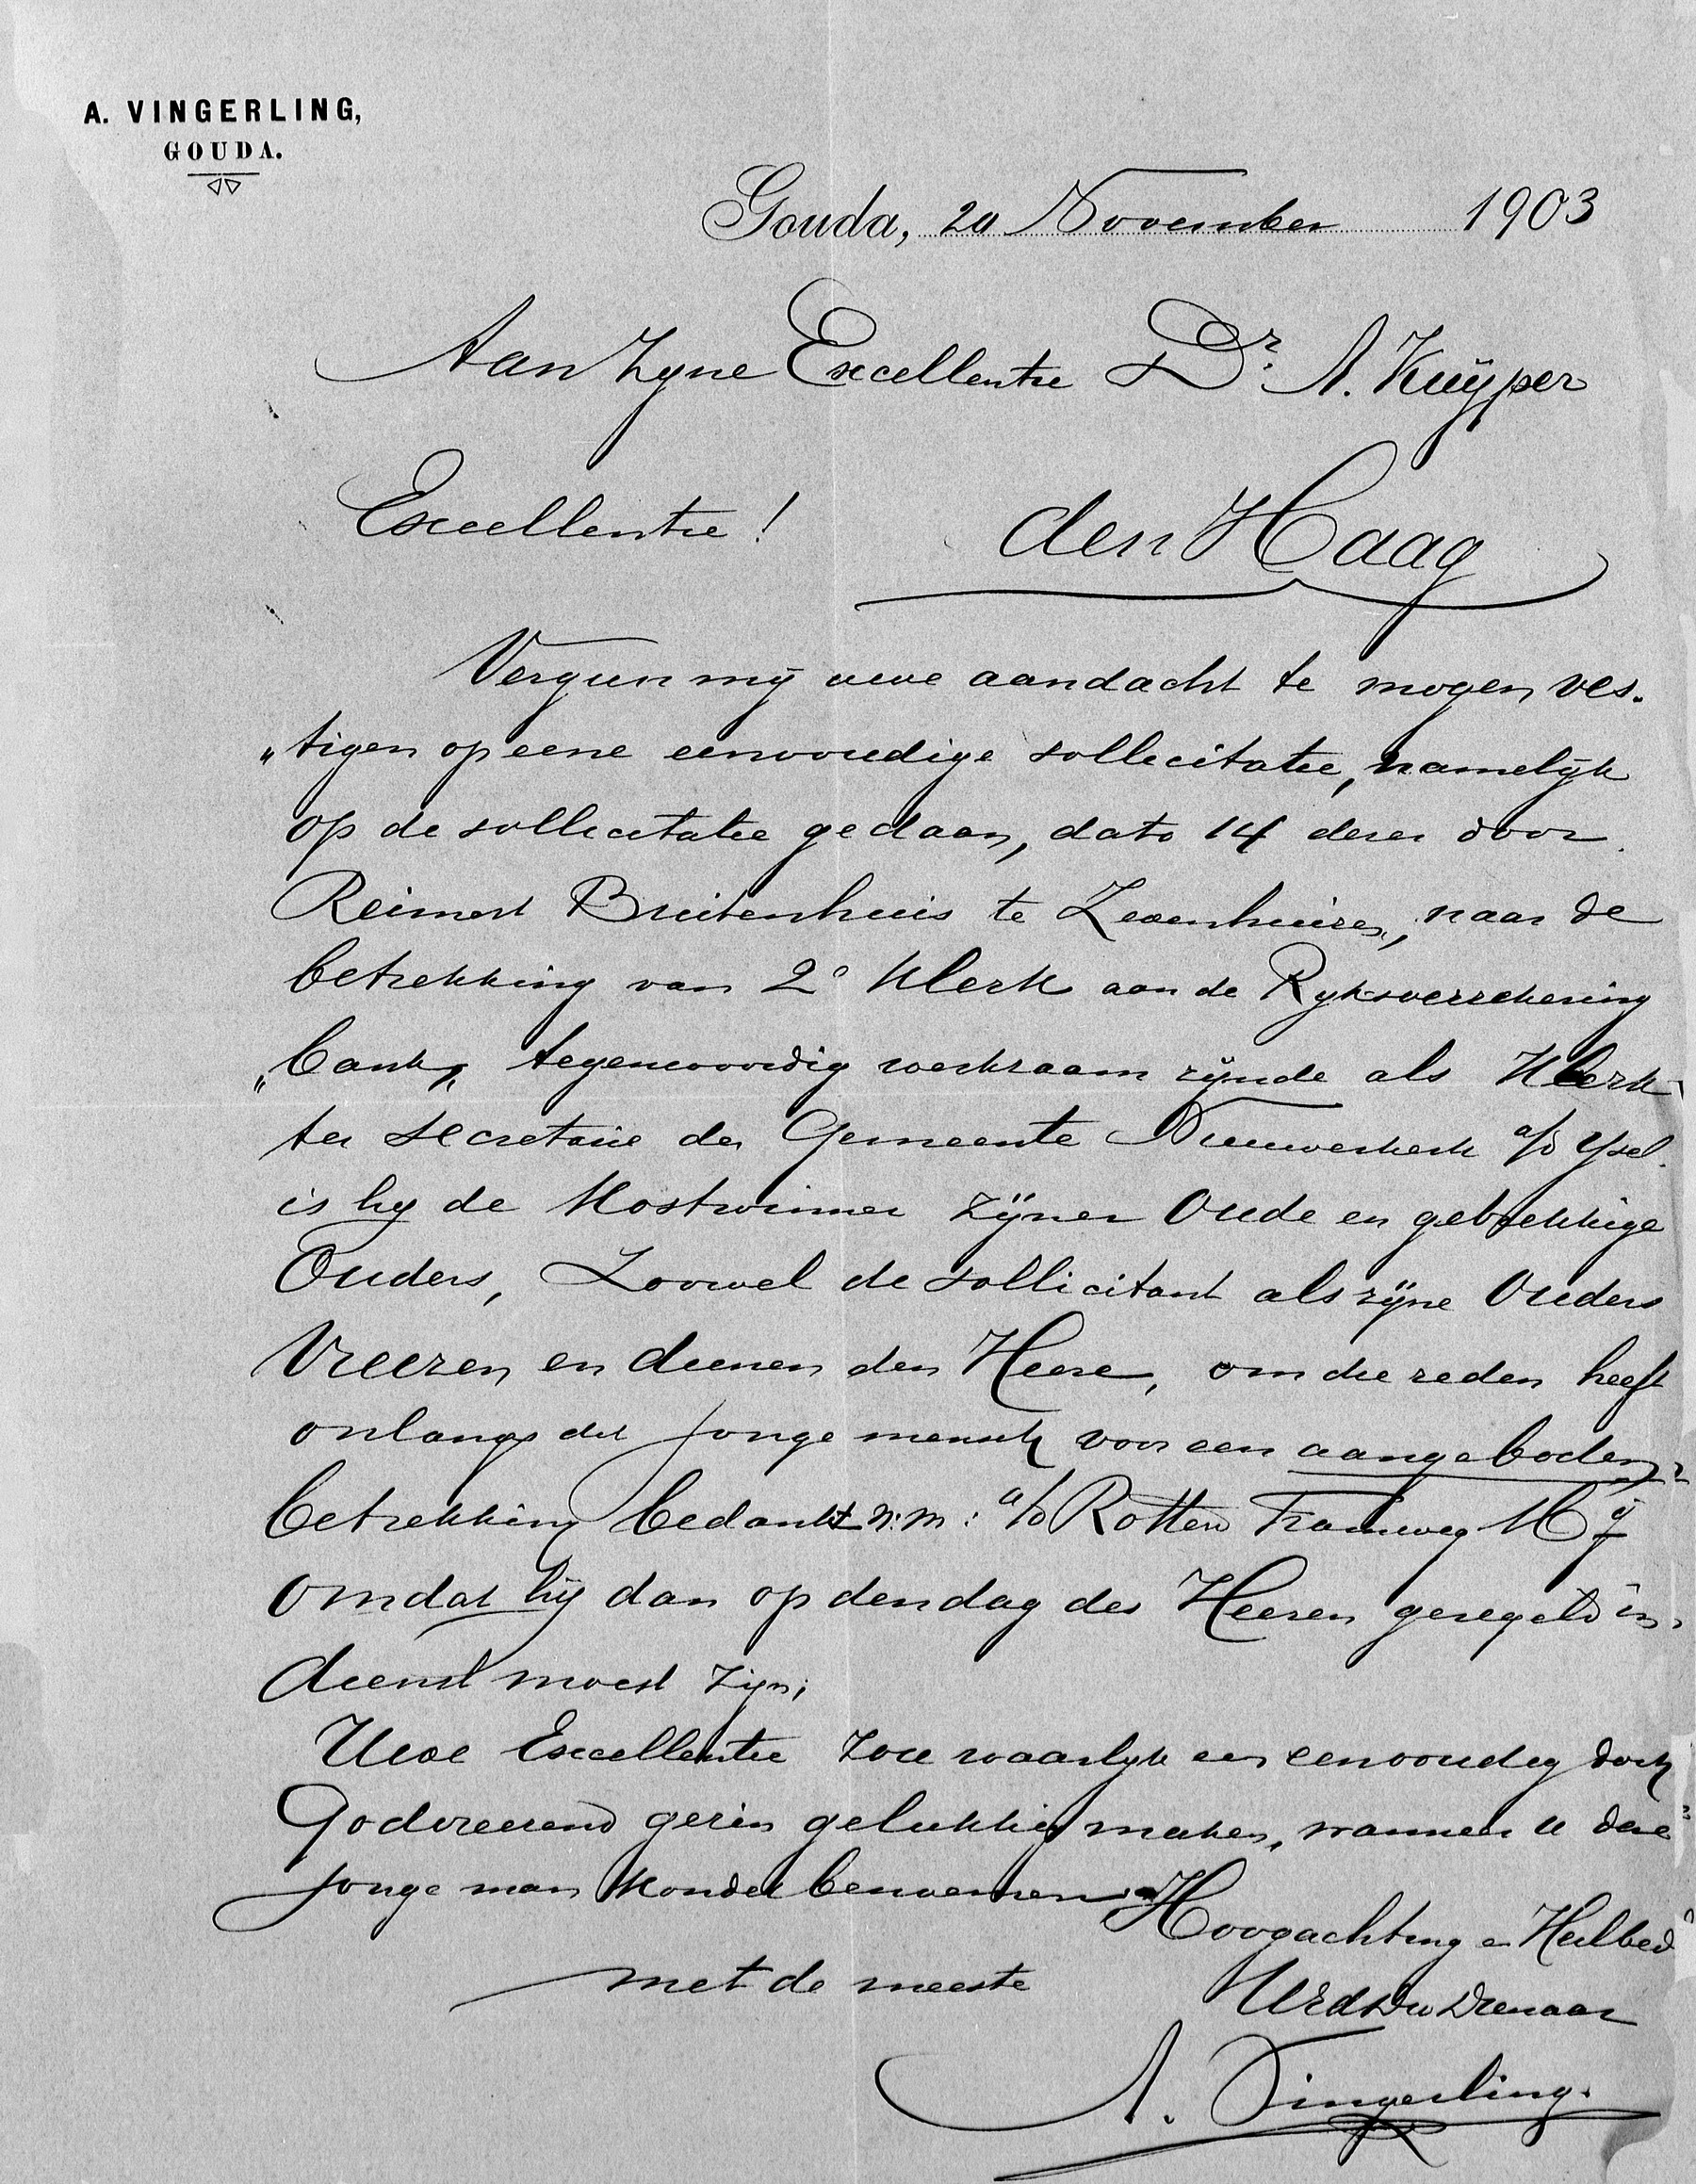 A. VINGERLING,
GOUDA.
Gouda, 20 November 1903
Aan Zyne Excellentie Dr. A. Kuÿper
Excellentie!
den Haag
Vergun mij uwe aandacht te mogen ves.
„tigen op eene eenvoudige sollicitatie, namelijk
op de sollicitatie gedaan, dato 14 dezer door
Reimert Buitenhuis te Zevenhuizen, naar de
betrekking van 2e Klerk aan de Ryksverzekering
„bank, tegenwoordig werkzaam zijnde als Klerk
ter secretarie der Gemeente Nieuwerkerk a/d Ysel.
is hy de Kostwinner zijner Oude en gebrekkige
Ouders, Zoowel de sollicitant als zijne Ouders
Vreezen en dienen den Heere, om die reden heeft
onlangs dit jonge mensch voor een aangeboden
betrekking bedankt n.m: a/d Rotterd Tramweg Mij
omdat hij dan op den dag des Heeren geregeld in
dienst moest zijn;
Uwe Excellentie zou waarlyk een eenvoudig doch
Godvreezend gezin gelukkig maken, wanneer U deze
jonge man kondet benoemen
Hoogachting en Heilbede
met de meeste
UEd Dw Dienaar
A. Vingerling.